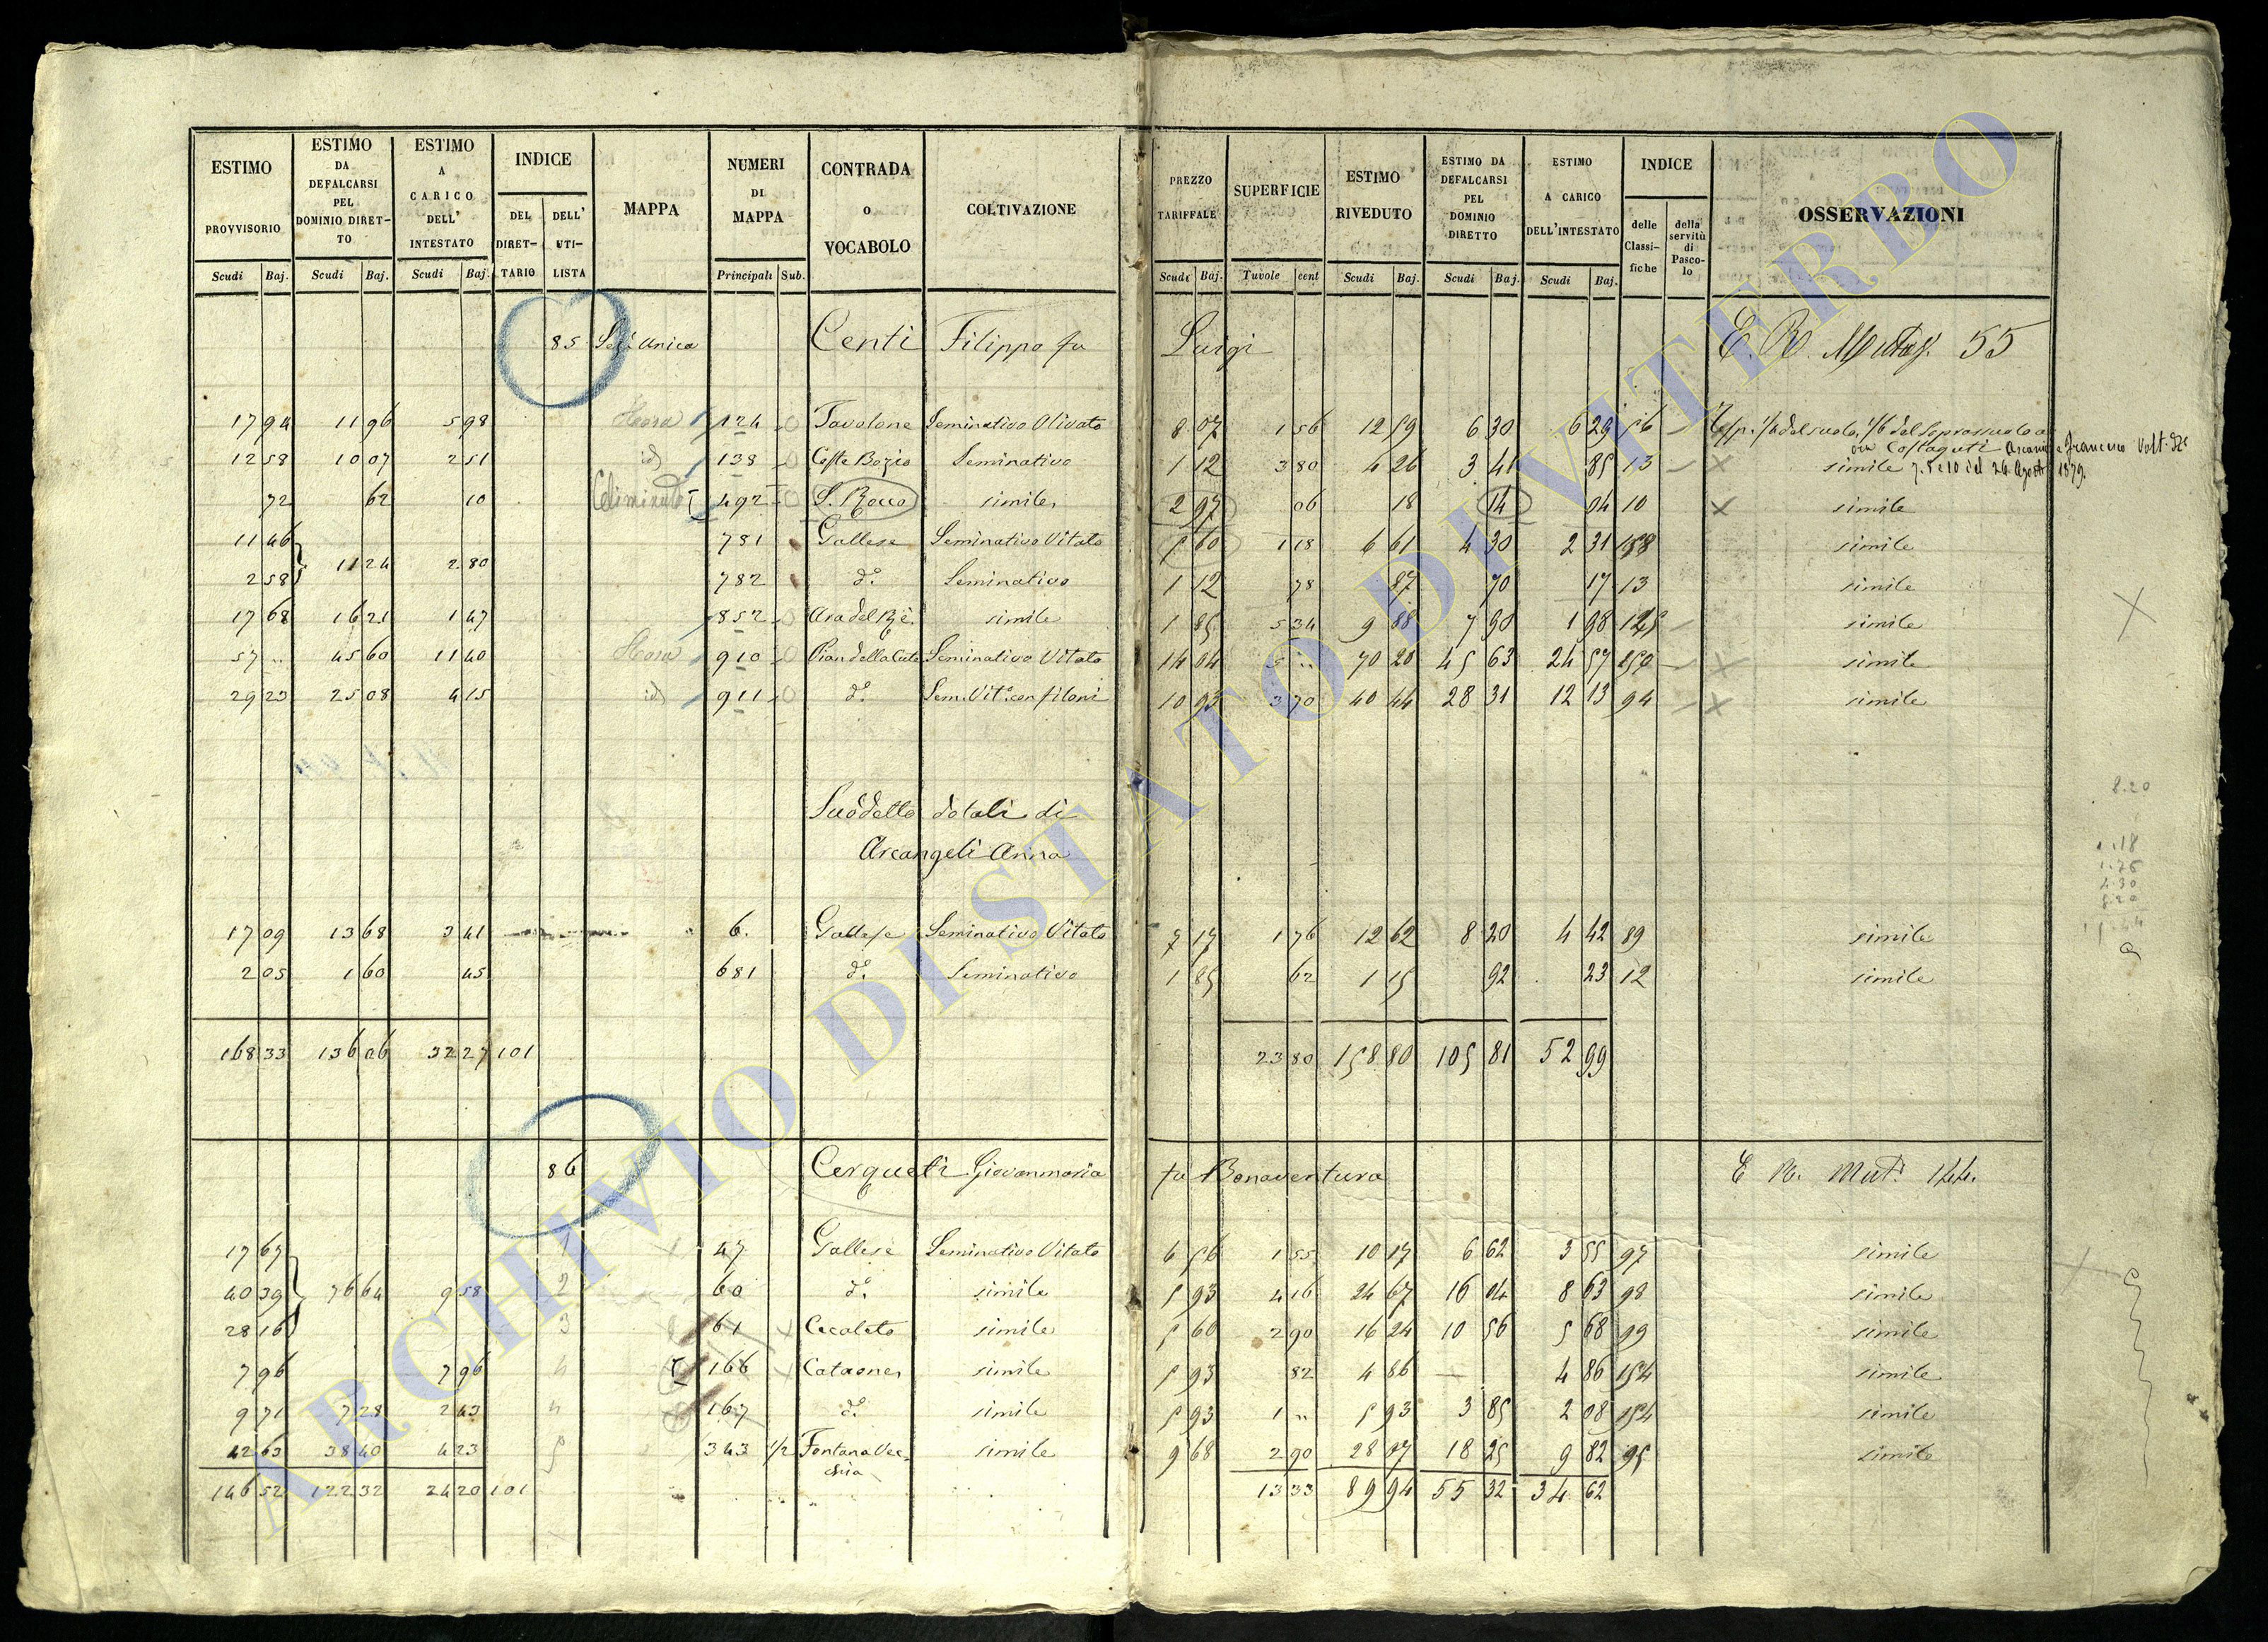 ESTIMO PROVVISORIO Scudi Baj. | ESTIMO DA DEFALCARSI PEL DOMINIO DIRETTO Scudi Baj. | ESTIMO A CARICO DELL' INTESTATO Scudi Baj. | INDICE DEL DIRETTARIO DELL' UTILISTA | MAPPA | NUMERI DI MAPPA Principali Sub. | CONTRADA o VOCABOLO | COLTIVAZIONE | PREZZO TARIFFALE Scudi Baj. | SUPERFICIE Tavole cent | ESTIMO RIVEDUTO Scudi Baj. | ESTIMO DA DEFALCARSI PEL DOMINIO DIRETTO Scudi Baj. | ESTIMO A CARICO DELL'INTESTATO Scudi Baj. | INDICE delle Classifiche della servitù di Pascolo | OSSERVAZIONI
85 Sez. Unica Centi Filippo fu Luigi E. R. Mutaz. 55
17 94 11 96 5 98 124 Tavolone Seminativo Olivato 8 07 1 56 12 59 6 30 6 29 56
12 58 10 07 2 51 id 138 Coste Bozio Seminativo 1 12 3 80 4 26 3 41 85 13 simile
72 62 10 492 S. Rocco simile 2 97 06 18 14 04 10 simile
11 46 781 Gallese Seminativo Vitato 5 60 1 18 6 61 4 30 2 31 158 simile
11 24 2 80
2 58 782 d.º Seminativo 1 12 78 87 70 17 13 simile
17 68 16 21 1 47 852 Ara del Rè simile 1 85 5 34 9 88 7 90 1 98 simile
57 " 45 60 11 40 910 Seminativo Vitato 14 04 5 " 70 20 45 63 24 57 simile
29 23 25 08 4 15 id 911 d.º Sem. Vit.º con filoni 10 93 3 70 40 44 28 31 12 13 94 simile
Suddetto dotali di
Arcangeli Anna
17 09 13 68 3 41 6. Gallese Seminativo Vitato 7 17 1 76 12 62 8 20 4 42 89 simile
2 05 1 60 45 681 d.º Seminativo 1 85 62 1 15 92 23 12 simile
168 33 136 06 32 27 101 23 80 158 80 105 81 52 99
86 Cerqueti Giovanmaria fu Bonaventura E R. Mut.e 144.
17 67 1 47 Gallese Seminativo Vitato 6 56 1 55 10 17 6 62 3 55 97 simile
40 39 76 64 9 58 2 60 d.º simile 5 93 4 16 24 67 16 04 8 63 98 simile
28 16 3 61 Cecaleto simile 5 60 2 90 16 24 10 56 5 68 99 simile
7 96 7 96 4 166 Cataones simile 5 93 82 4 86 — 4 86 154 simile
9 71 7 28 2 43 4 167 d.º simile 5 93 1 " 5 93 3 85 2 08 154 simile
42 63 38 40 4 23 5 343 1/2 Fontana Vec- simile 9 68 2 90 28 07 18 25 9 82 95 simile
chia
146 52 122 32 24 20 101 13 33 89 94 55 32 34 62
8.20
1.18
1.76
4.30
8.20
ARCHIVIO DI STATO DI VITERBO